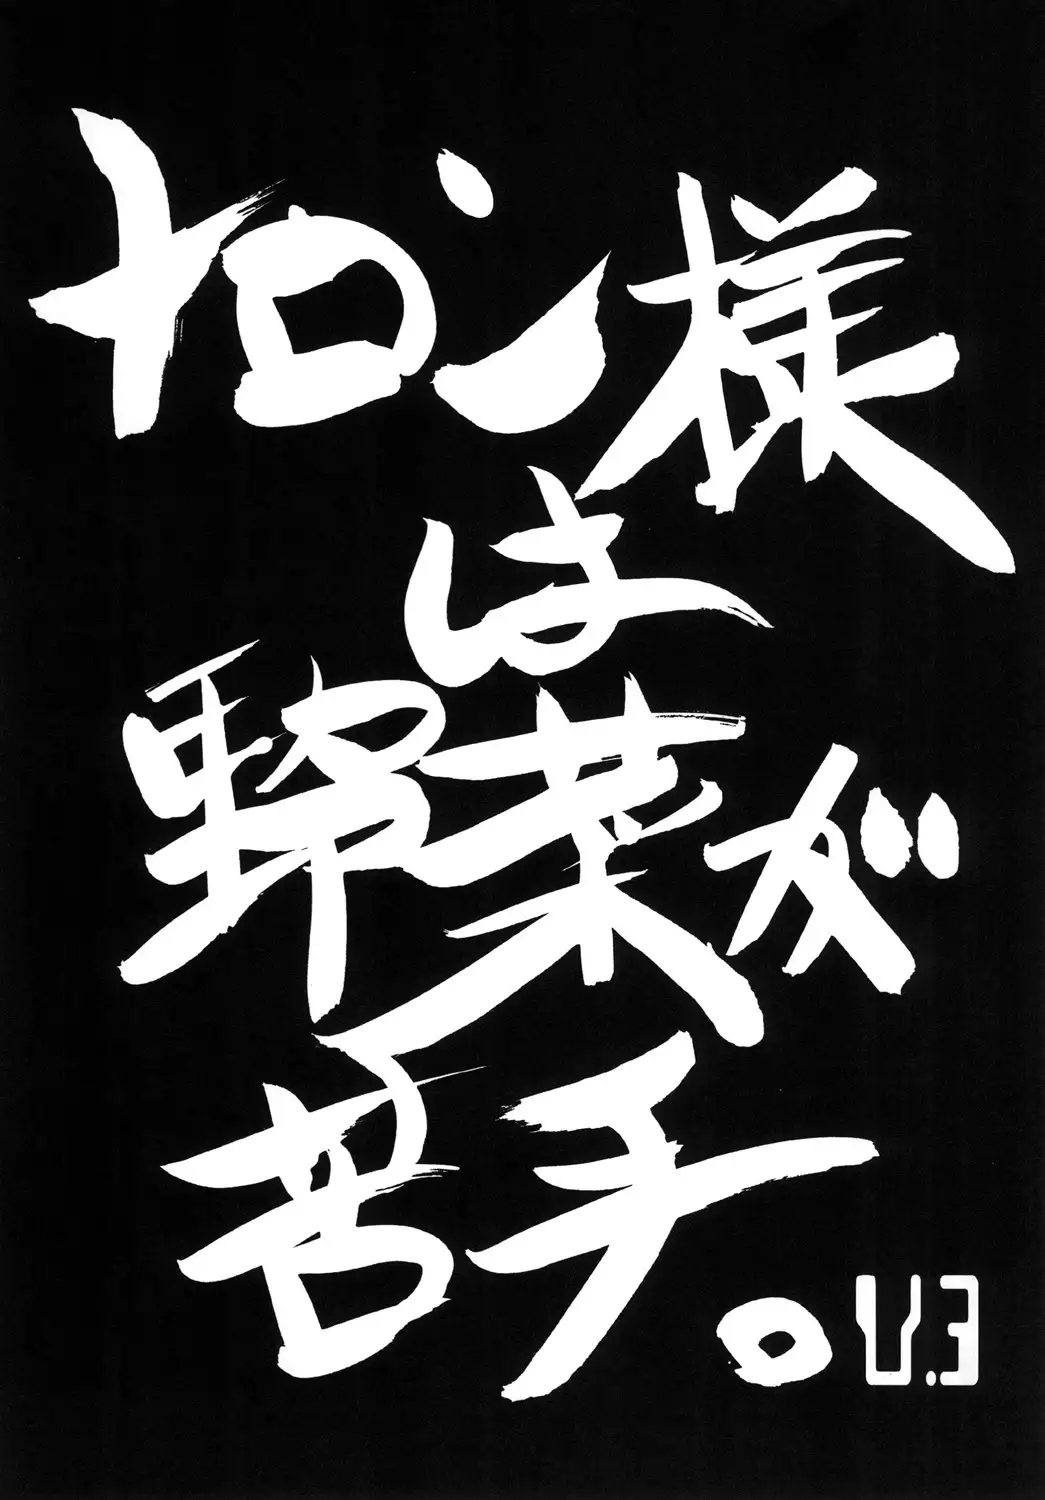 メロン様
は
野菜が
苦手。V.3